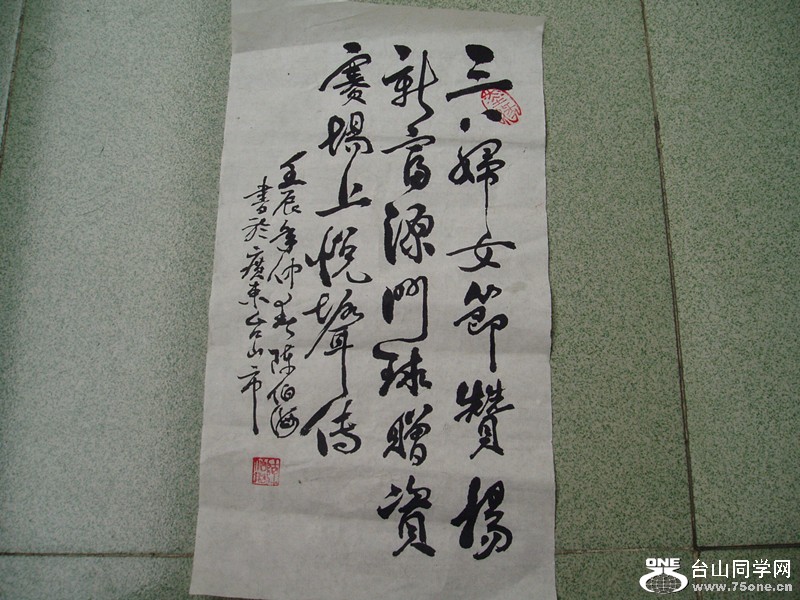 三八婦女節贊揚
新富源門球贈資
賽場上悅聲傳
壬辰年仲春陳伯海
書於廣東台山市
ONE 台山同学网
www.75one.cn